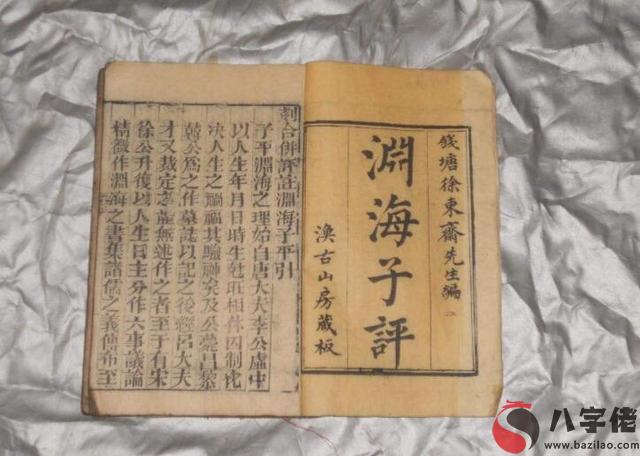 錢塘徐東齋先生編
淵海子評
古山房藏板
刻合併評註淵海子平引
子平淵海之理始自唐大夫李公虛中
以人生年月日時生尅旺相休囚制化
決人生之禍福其驗神矣及公薨昌黎
韓公為之作墓誌以記之後經呂大夫
才又裁定之竝無述作之者至于有宋
徐公升復以人生日主分作六事議論
精微作淵海之書集諸儒之義傳布至
八字佬
www.bazilao.com